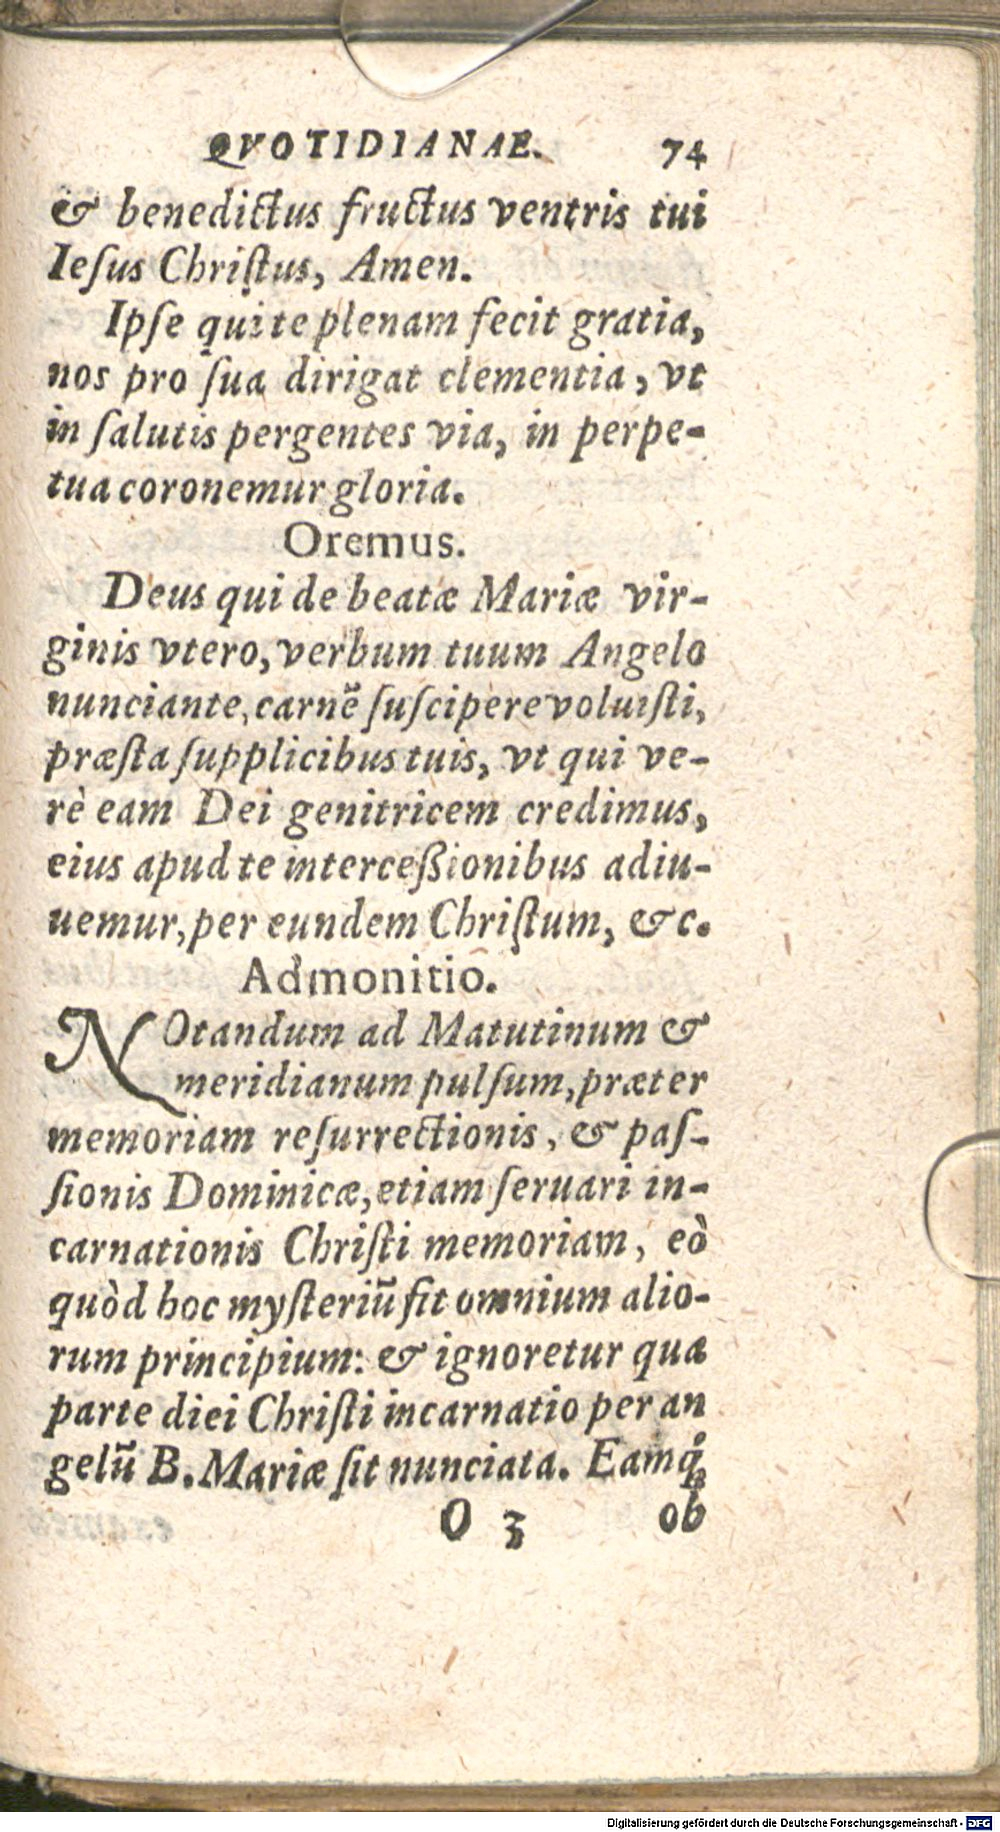 QVOTIDIANAE. 74
& benedictus fructus ventris tui
Ieſus Chriſtus, Amen.
Ipſe qui te plenam fecit gratia,
nos pro ſua dirigat clementia, vt
in ſalutis pergentes via, in perpe-
tua coronemur gloria.
Oremus.
Deus qui de beatæ Mariæ vir-
ginis vtero, verbum tuum Angelo
nunciante, carnẽ ſuſcipere voluiſti,
præſta ſupplicibus tuis, vt qui ve-
rè eam Dei genitricem credimus,
eius apud te interceßionibus adiu-
uemur, per eundem Chriſtum, &c.
Admonitio.
NOtandum ad Matutinum &
meridianum pulſum, præter
memoriam reſurrectionis, & paſ-
ſionis Dominicæ, etiam ſeruari in-
carnationis Chriſti memoriam, eò
quòd hoc myſteriũ ſit omnium alio-
rum principium: & ignoretur qua
parte diei Chriſti incarnatio per an
gelũ B. Mariæ ſit nunciata. Eamq́;
O 3 ob
Digitalisierung gefördert durch die Deutsche Forschungsgemeinschaft - DFG